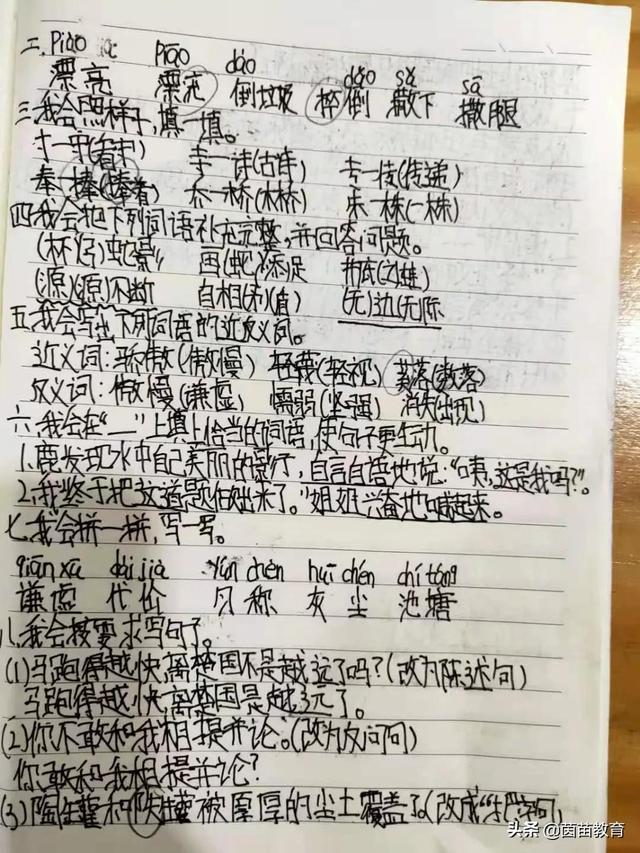 二、piào piāo dào dǎo sǎ sā
漂亮 漂流 倒垃圾 摔倒 撒下 撒腿
三、我会照样子,填一填。
寸一守(看守) 寺一诗(古诗) 专一传(传递)
奉一捧(捧着) 乔一桥(木桥) 朱一株(一株)
四、我会把下列词语补充完整,并回答问题。
(杯)(弓)蛇影 画(蛇)添足 井底(之)(蛙)
(源)(源)不断 自相(矛)(盾) (无)边(无)际
五、我会写出下列词语的近反义词。
近义词:骄傲(傲慢) 轻蔑(轻视) 奚落(数落)
反义词:傲慢(谦虚) 懦弱(坚强) 消失(出现)
六、我会在“__”上填上恰当的词语,使句子更生动。
1.鹿发现水中自己美丽的影子,自言自语地说:“咦,这是我吗?”。
2.“我终于把这道题做出来了。”姐姐兴奋地喊起来。
七、我会拼一拼,写一写。
qiān xū dài jià yún chèn huī chén chí táng
谦虚 代价 匀称 灰尘 池塘
八、我会按要求写句子。
(1)马跑得越快,离楚国不是越远了吗?(改为陈述句)
马跑得越快,离楚国是越远了。
(2)你不敢和我相提并论。(改为反问句)
你敢和我相提并论?
(3)陶罐和铁罐被厚厚的尘土覆盖了。(改成
头条 @茵苗教育